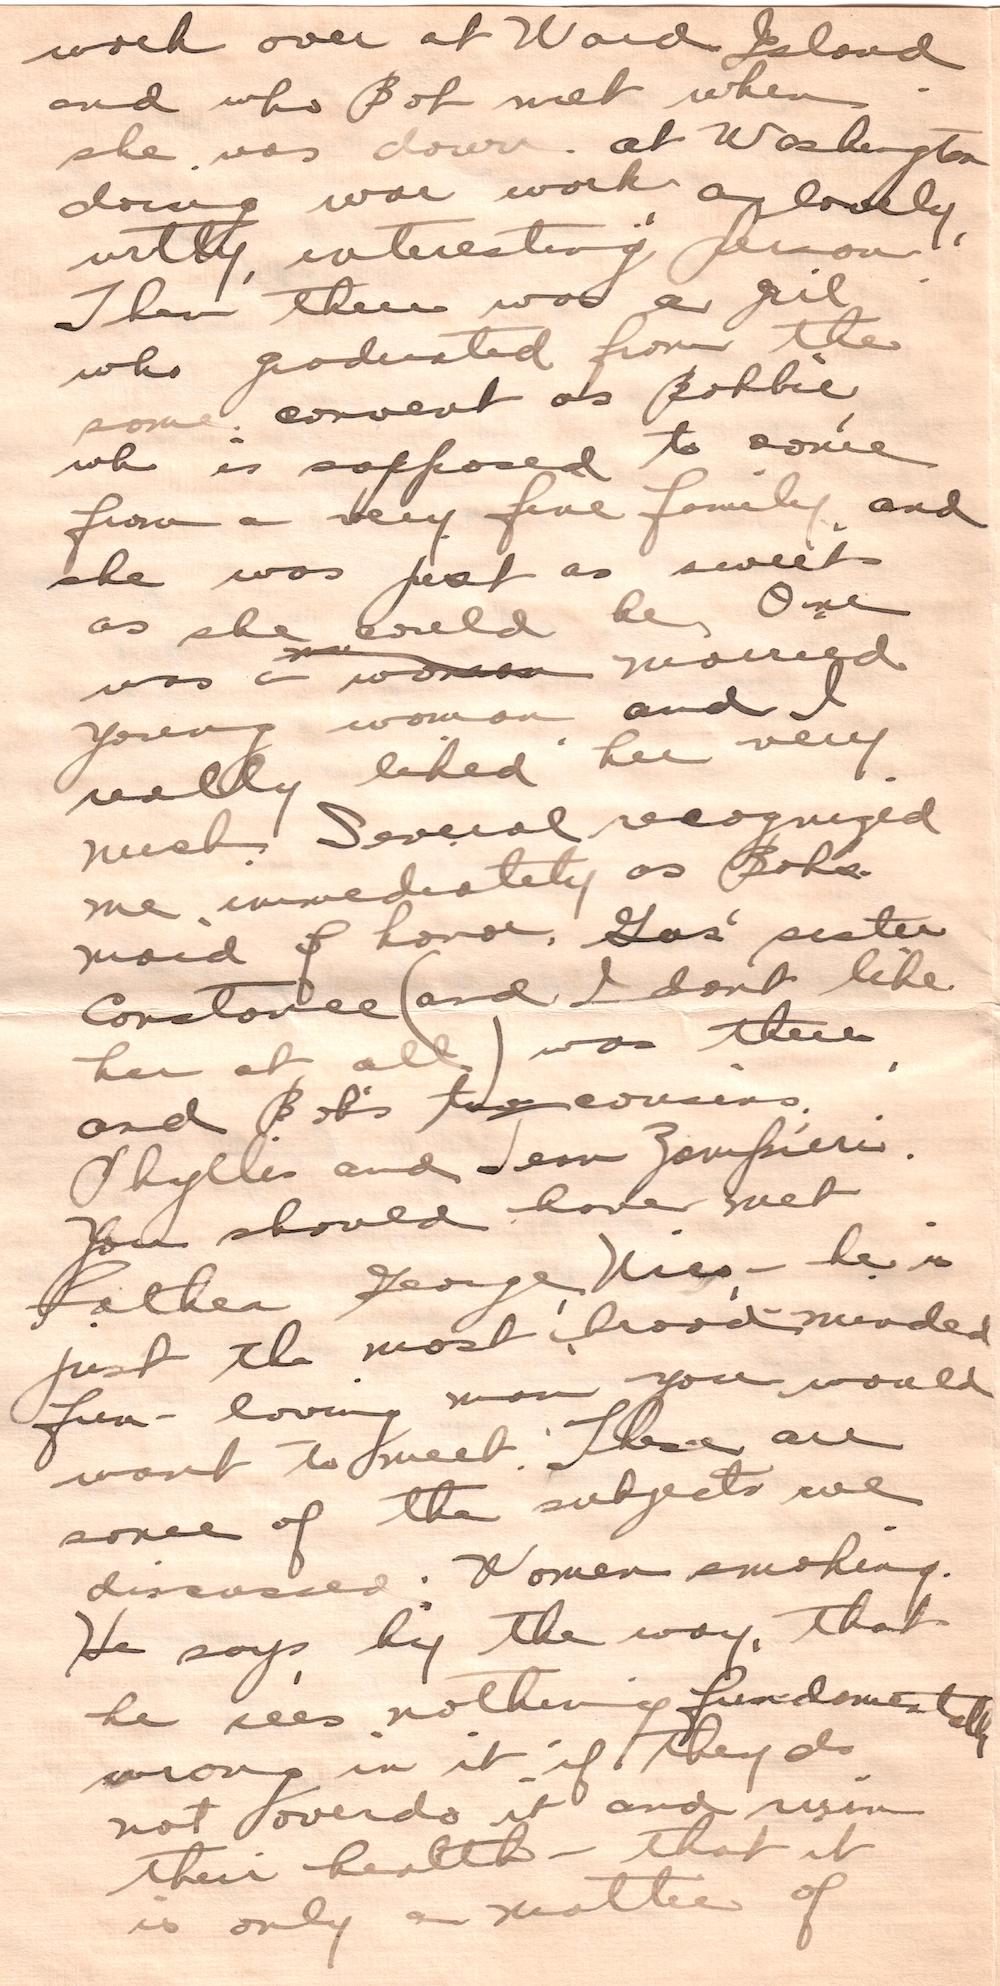 work over at Ward Island
and who Bob met when
she was down at Washington
doing war work, a lovely,
witty, interesting person.
Then there was a girl
who graduated from the
same convent as Bobbie
who is supposed to come
from a very fine family and
she was just as sweet
as she could be. One
was a woman married
young woman and I
really liked her very
much. Several recognized
me immediately as Bob's
maid of honor. Gus' sister
Constance (and I dont like
her at all) was there
and Bob's two cousins,
Phyllis and Jean Zampieri.
You should have met
Father George Nies – he is
just the most broad-minded
fun-loving man you would
want to meet. These are
some of the subjects we
discussed: Women smoking.
He says by the way, that
he sees nothing fundamentally
wrong in it if they do
not overdo it and ruin
their health – that it
is only a matter of